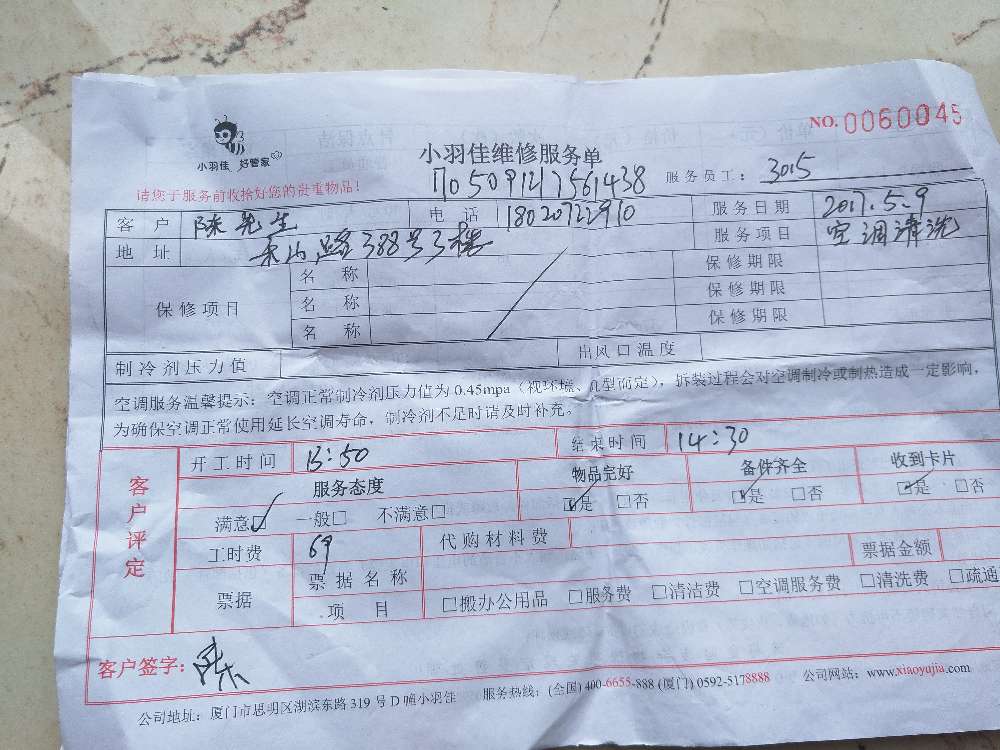 NO.0060045
小羽佳 好管家
小羽佳维修服务单
请您于服务前收拾好您的贵重物品!
1705091217561438 服务员工: 3015
客户 陈先生 电话 18020722910 服务日期 2017.5.9
地址 路388号3楼 服务项目 空调清洗
保修项目
名称 保修期限
名称 保修期限
名称 保修期限
制冷剂压力值 出风口温度
空调服务温馨提示:空调正常制冷剂压力值为0.45mpa(视环境、机型而定),拆装过程会对空调制冷或制热造成一定影响,
为确保空调正常使用延长空调寿命,制冷剂不足时请及时补充。
客户评定
开工时间 13:50 结束时间 14:30
服务态度 物品完好 备件齐全 收到卡片
满意☑ 一般□ 不满意□ ☑是 □否 ☑是 □否 ☑是 □否
工时费 69 代购材料费
票据 票据名称 票据金额
项目 □搬办公用品 □服务费 □清洁费 □空调服务费 □清洗费 □疏通
客户签字: 陈
公司地址:厦门市思明区湖滨东路319号D幢小羽佳 服务热线:(全国)400-6655-888 (厦门)0592-5178888 公司网站:www.xiaoyujia.com